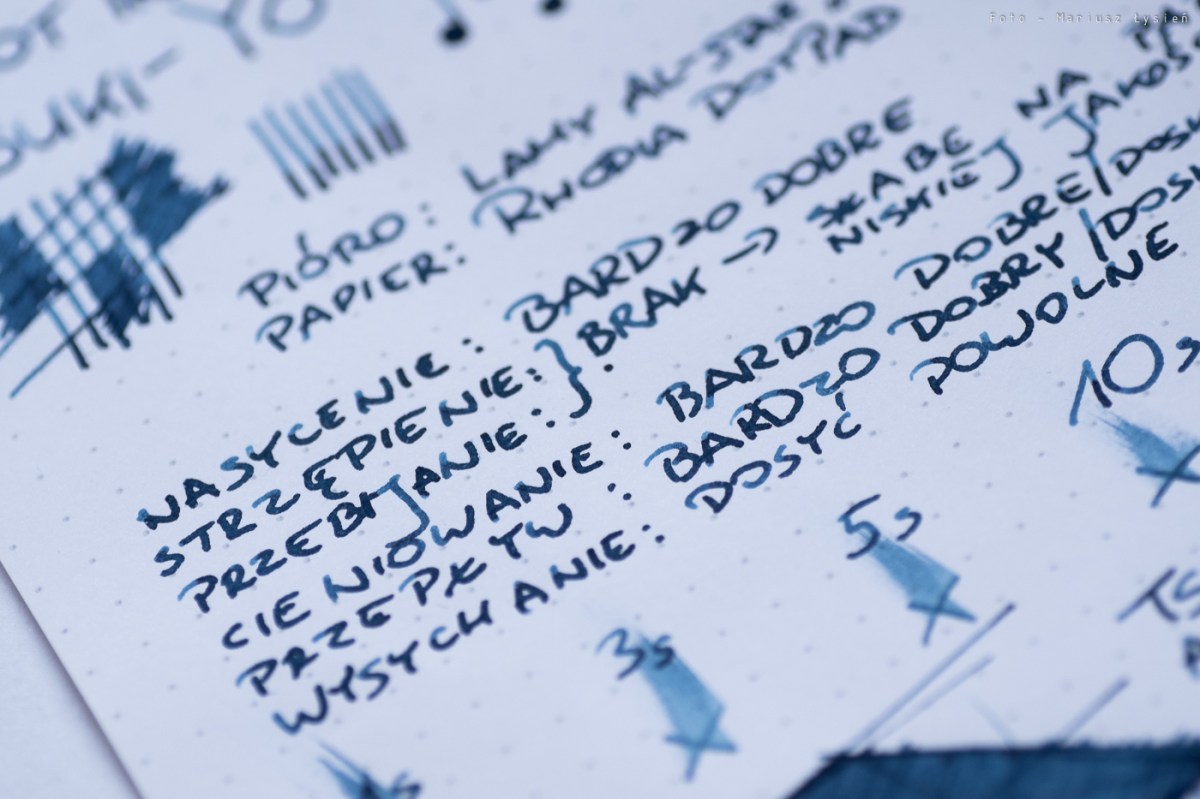 Foto - Mariusz Łysień
PIÓRO: LAMY AL-STAR
PAPIER: RHODIA DOTPAD
NASYCENIE: BARDZO DOBRE
STRZĘPIENIE: } BRAK → SŁABE NA
PRZEBIJANIE: NISKIEJ JAKOŚ
CIENIOWANIE: BARDZO DOBRE/DOSK
PRZEPŁYW: BARDZO DOBRY/DOSK
WYSYCHANIE: DOSYĆ POWOLNE
3s
5s
10s